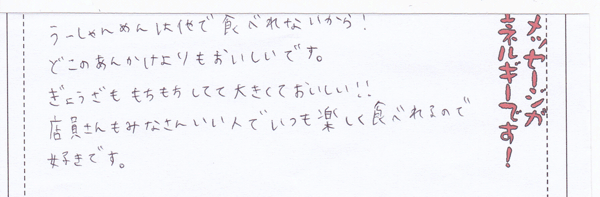 うーしゃんめんは他で食べれないから!
どこのあんかけよりもおいしいです。
ぎょうざももちもちしてて大きくておいしい!!
店員さんもみなさんいい人でいつも楽しく食べれるので
好きです。
メッセージが
ネルギーです!